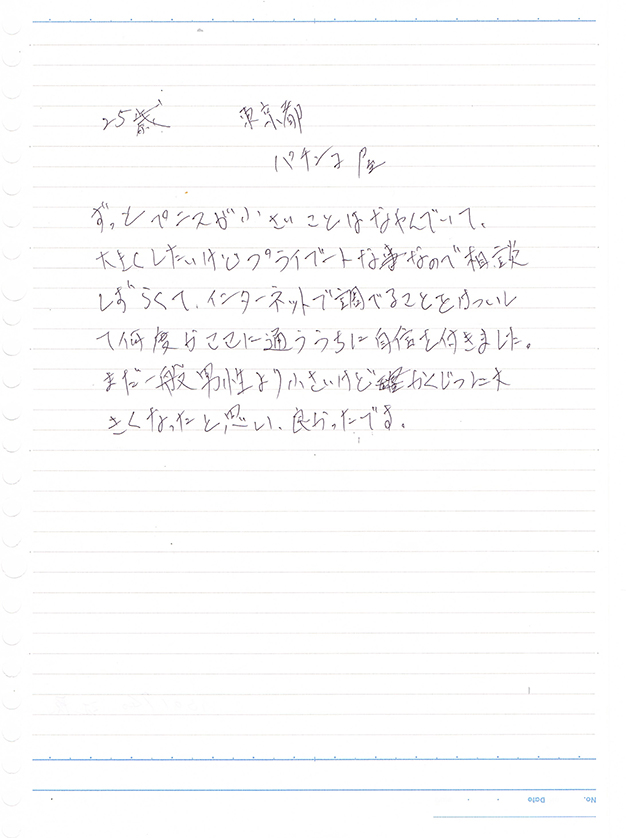 25歳 東京都
パチンコ屋
ずっとペニスが小さいことはなやんでいて、
大きくしたいけどプライベートな事なので相談
しずらくて、インターネットで調べることをけついし
て何度かここに通ううちに自信を付きました。
まだ一般男性より小さいけどかくじつに大
きくなったと思い、良かったです。
No.
Date